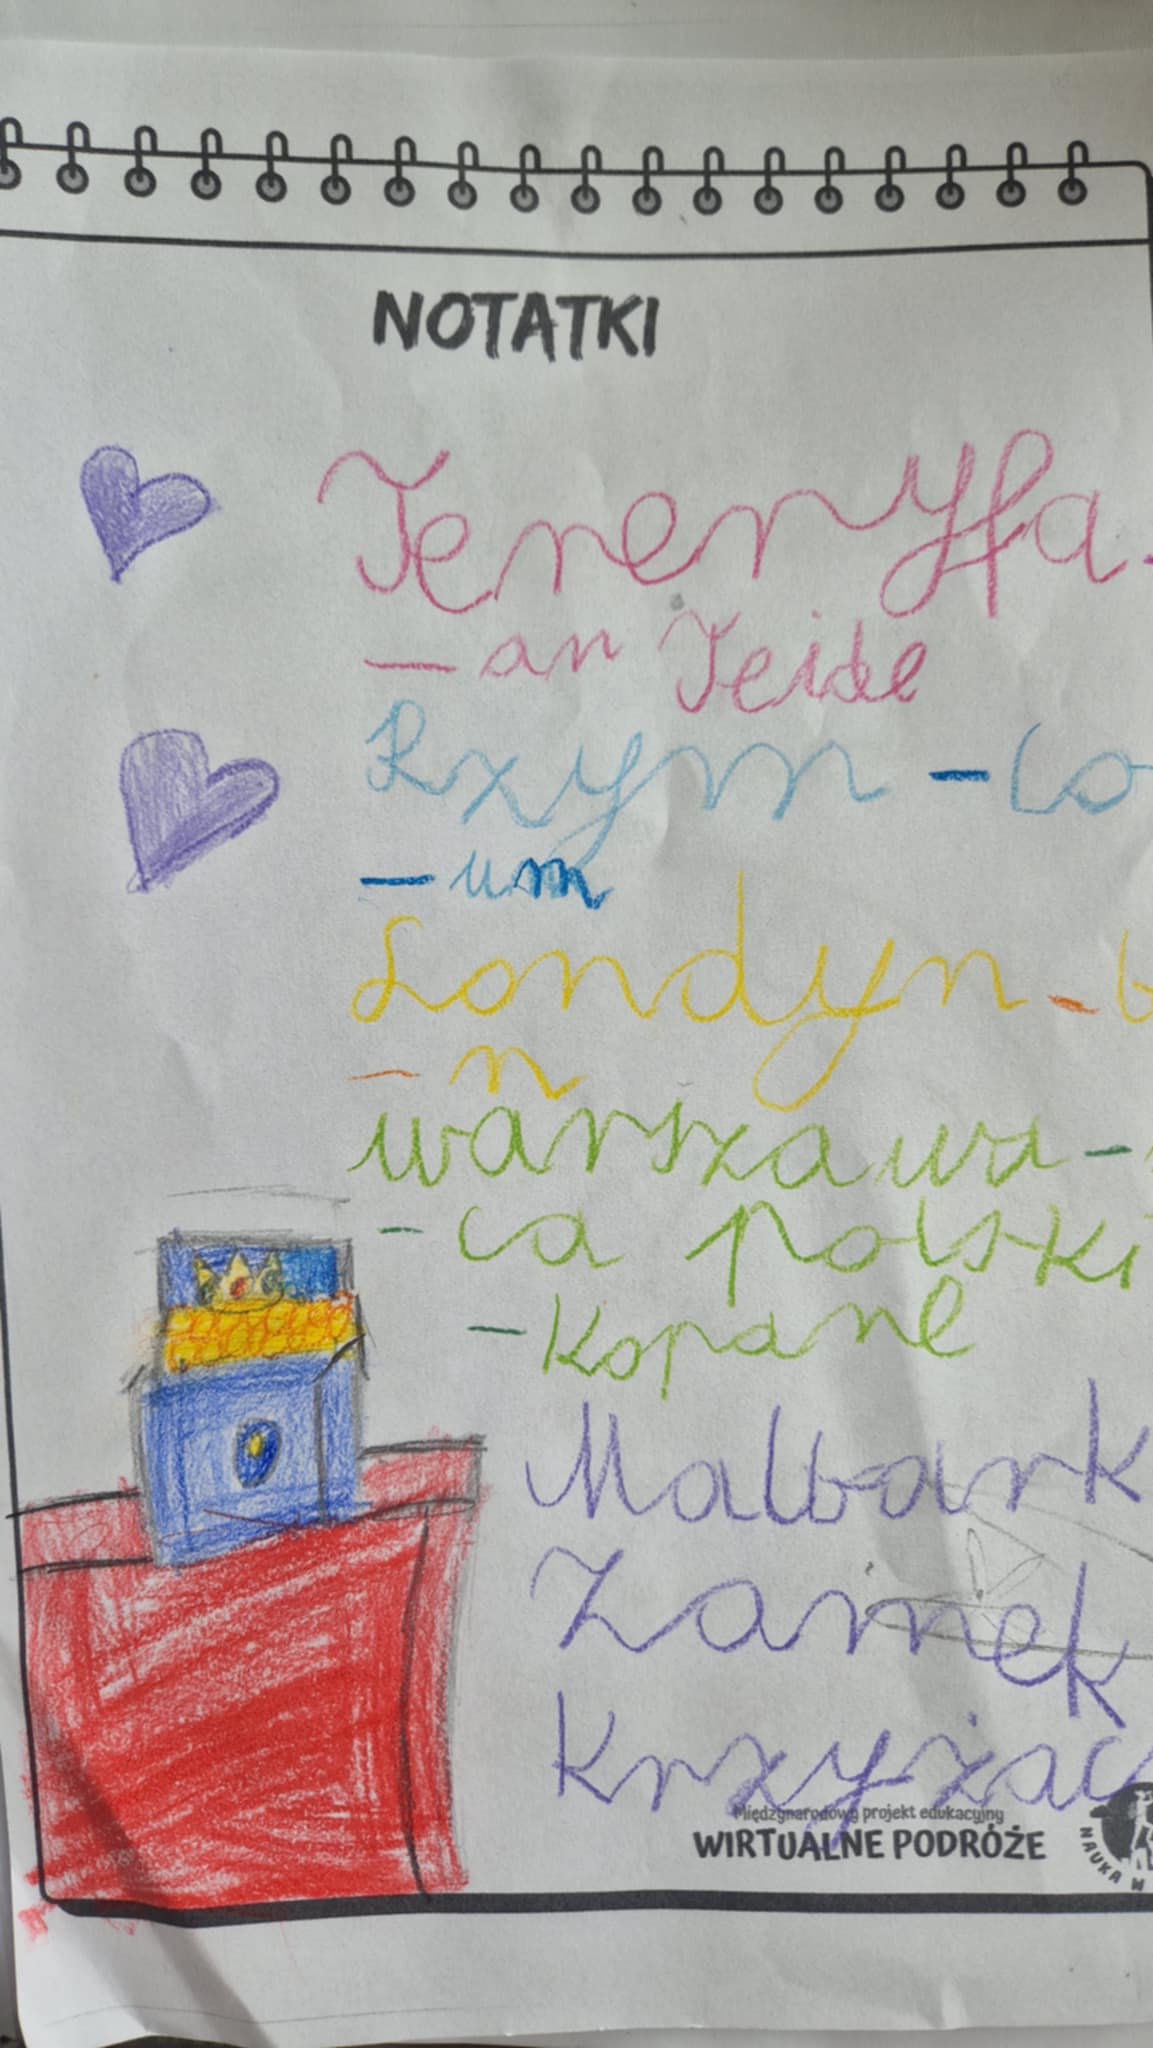 NOTATKI
Teneryfa -
- an Teide
Rzym - Co
- um
Londyn - b
- n
warszawa -
- ca polski
- Kopane
Malbork
Zamek
Krzyżac
Międzynarodowy projekt edukacyjny
WIRTUALNE PODRÓŻE
NAUKA W